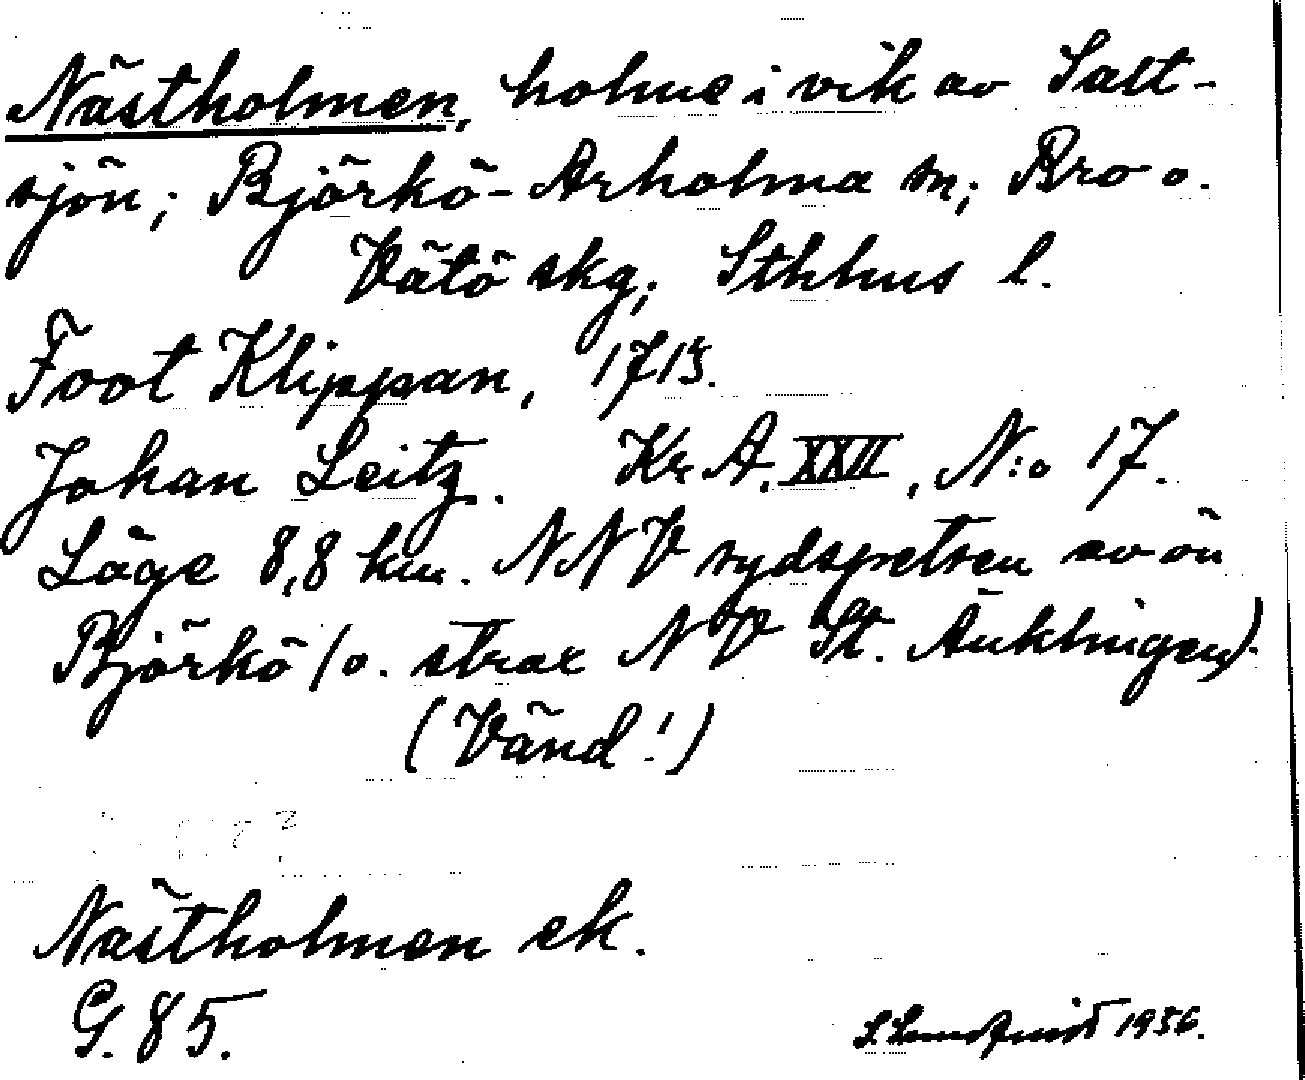 Nästholmen, holme i vik av Salt-
sjön; Björkö-Arholma sn; Bro o.
Vätö skg; Sthlms l.
Foot Klippan, 1715.
Johan Leitz. Kr. A. XXII, N:o 17.
Läge 8,8 km. NNV sydspetsen av ön
Björkö /o. strax NV St. Äuklingen).
(Vänd!)
Nästholmen ek.
G. 85.
S. Lundqvist 1956.